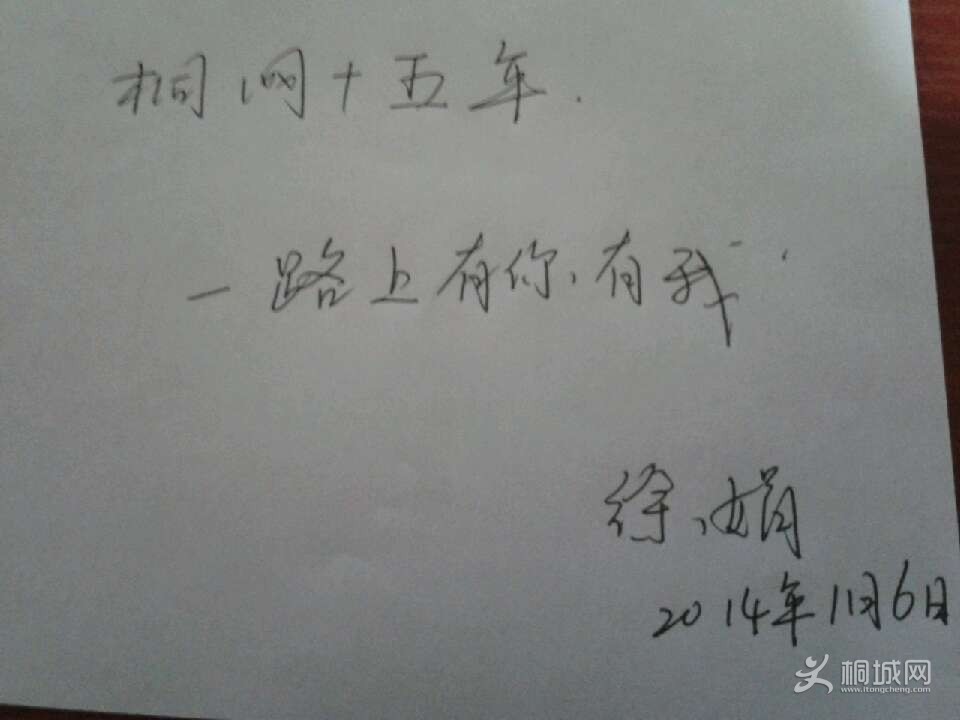 桐网十五年.
一路上有你、有我.
徐娟
2014年1月6日
桐城网
www.itongcheng.com